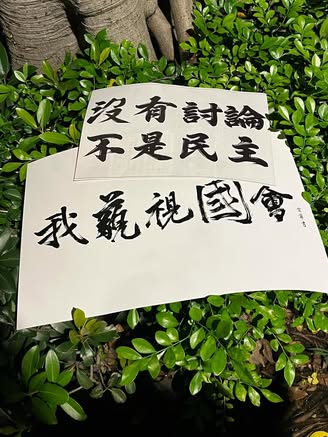 沒有討論
不是民主
我藐視國會